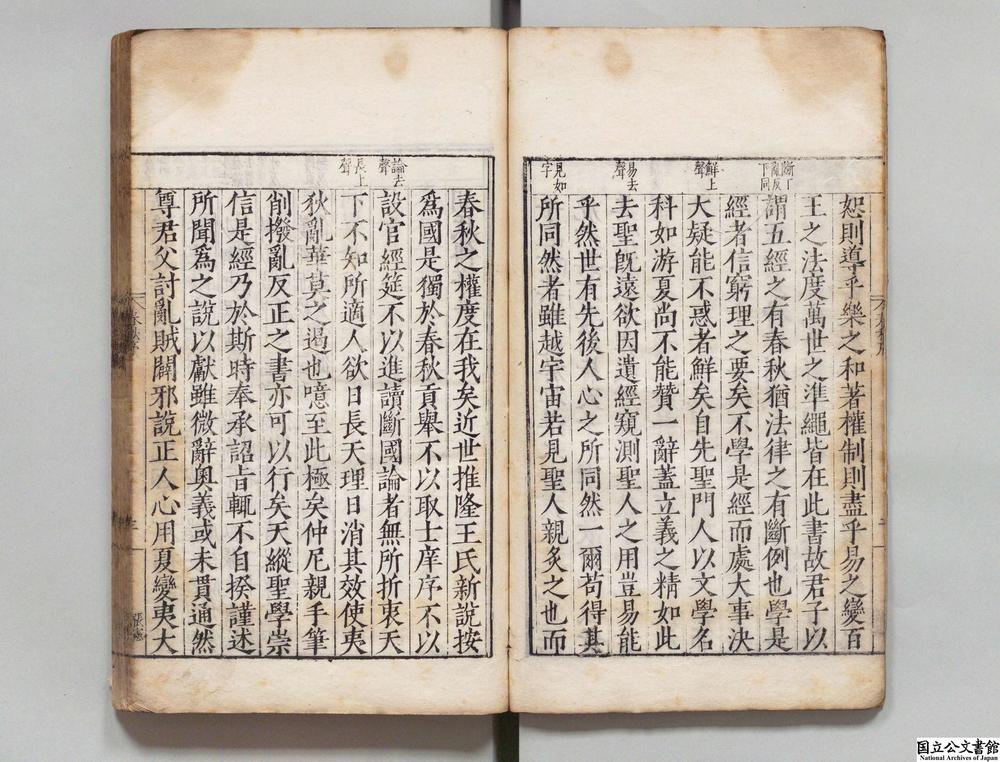 恕則導乎樂之和著權制則盡乎易之變百
王之法度萬世之準繩皆在此書故君子以
謂五經之有春秋猶法律之有斷例也學是
經者信窮理之要矣不學是經而處大事決
大疑能不惑者鮮矣自先聖門人以文學名
科如游夏尚不能贊一辭蓋立義之精如此
去聖旣遠欲因遺經窺測聖人之用豈易能
乎然世有先後人心之所同然一爾苟得其
所同然者雖越宇宙若見聖人親炙之也而
斷丁
亂反
下同
鮮上
聲
易去
聲
見如
字
春秋之權度在我矣近世推隆王氏新說按
爲國是獨於春秋貢舉不以取士庠序不以
設官經筵不以進讀斷國論者無所折衷天
下不知所適人欲日長天理日消其效使夷
狄亂華莫之遏也噫至此極矣仲尼親手筆
削撥亂反正之書亦可以行矣天縱聖學崇
信是經乃於斯時奉承詔旨輒不自揆謹述
所聞爲之說以獻雖微辭奥義或未貫通然
尊君父討亂賊闢邪說正人心用夏變夷大
論去
聲
長上
聲
国立公文書館
National Archives of Japan